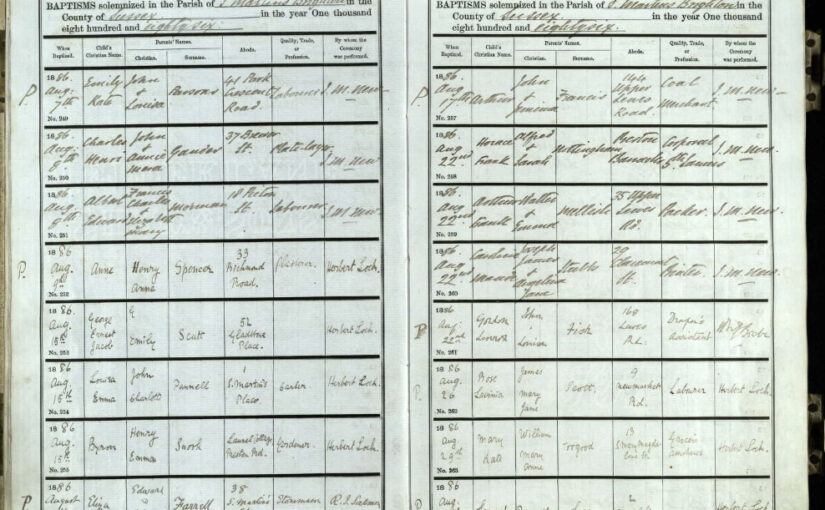 BAPTISMS solemnized in the Parish of S. Martins Brighton in the
County of Sussex in the year One thousand
eight hundred and eighty six.
When Baptized.
Child's Christian Name.
Parents' Names.
Christian.
Surname.
Abode.
Quality, Trade, or Profession.
By whom the Ceremony was performed.
1886
Aug:
7th
No. 249
Emily
Kate
John
&
Louisa
Parsons
41 Park
Crescent
Road.
Labourer
J. M. New
1886
Aug:
8th
No. 250
Charles
Henri
John
&
Annie
Gander
37
St.
Plate-layer
J. M. New
1886
Aug.
8th
No. 251
Albert
Edward
Francis
Charles
&
Elizabeth
Mary
18
St.
Labourer
J. M. New
P.
1886
Aug.
9th
No. 252
Anne
Henry
Anne
Spencer
33
Richmond
Road.
Plasterer
Herbert Lock.
1886
Aug
15th
No. 253
George
Ernest
Jacob
G
Emily
Scutt
52
Gladstone
Place.
Herbert Lock.
1886
Aug.
15th
No. 254
Louisa
Emma
John
Charlott
Pannell
1
S. Martin's
Place
Carter
Herbert Lock.
1886
Aug.
15th
No. 255
Byron
Henry
Emma
Snook
Laurel Cottage
Preston Rd.
Gardener
Herbert Lock.
P
1886
August
Eliza
Edward
Farrell
38
S. Martin's
Stonemason
BAPTISMS solemnized in the Parish of S. Martins Brighton in the
County of Sussex in the year One thousand
eight hundred and eighty six.
When Baptized.
Child's Christian Name.
Parents' Names.
Christian.
Surname.
Abode.
Quality, Trade, or Profession.
By whom the Ceremony was performed.
P
1886
Aug
17th
No. 257
Arthur
John
&
Jemima
Francis
Upper
Lewes
Road.
Coal
Merchant
J. M. New
1886
Aug
22nd
No. 258
Horace
Frank
Alfred
&
Sarah
Nottingham
Preston
Barracks
Corporal
5th Lancers
J. M. New
1886
Aug.
22nd
No. 259
Frank
Walter
&
35 Upper
Lewes
Rd.
J. M. New.
1886
Aug
22nd
No. 260
Caroline
Joseph
James
&
Angelina
Jane
Stubbs
29
St.
J. M. New
P
1886
Aug:
22nd
No. 261
Gordon
John
&
Louisa
Fish
168
Lewes
Rd.
Draper's
Assistant
P.
1886
Aug
26
No. 262
Rose
Lavinia
James
Mary
Jane
Scott
9
Newmarket
Rd.
Labourer
Herbert Lock
1886
Aug
29th
No. 263
Mary
Kate
William
&
Mary
Anne
Toogood
13
Herbert Lock.
P
1886
Aug.
Herbert Lock